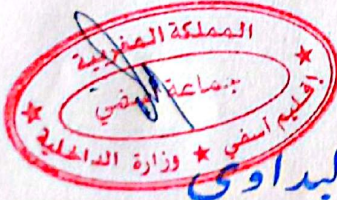 المملكة المغربية
جماعة آسفي
إقليم آسفي ★ وزارة الداخلية ★